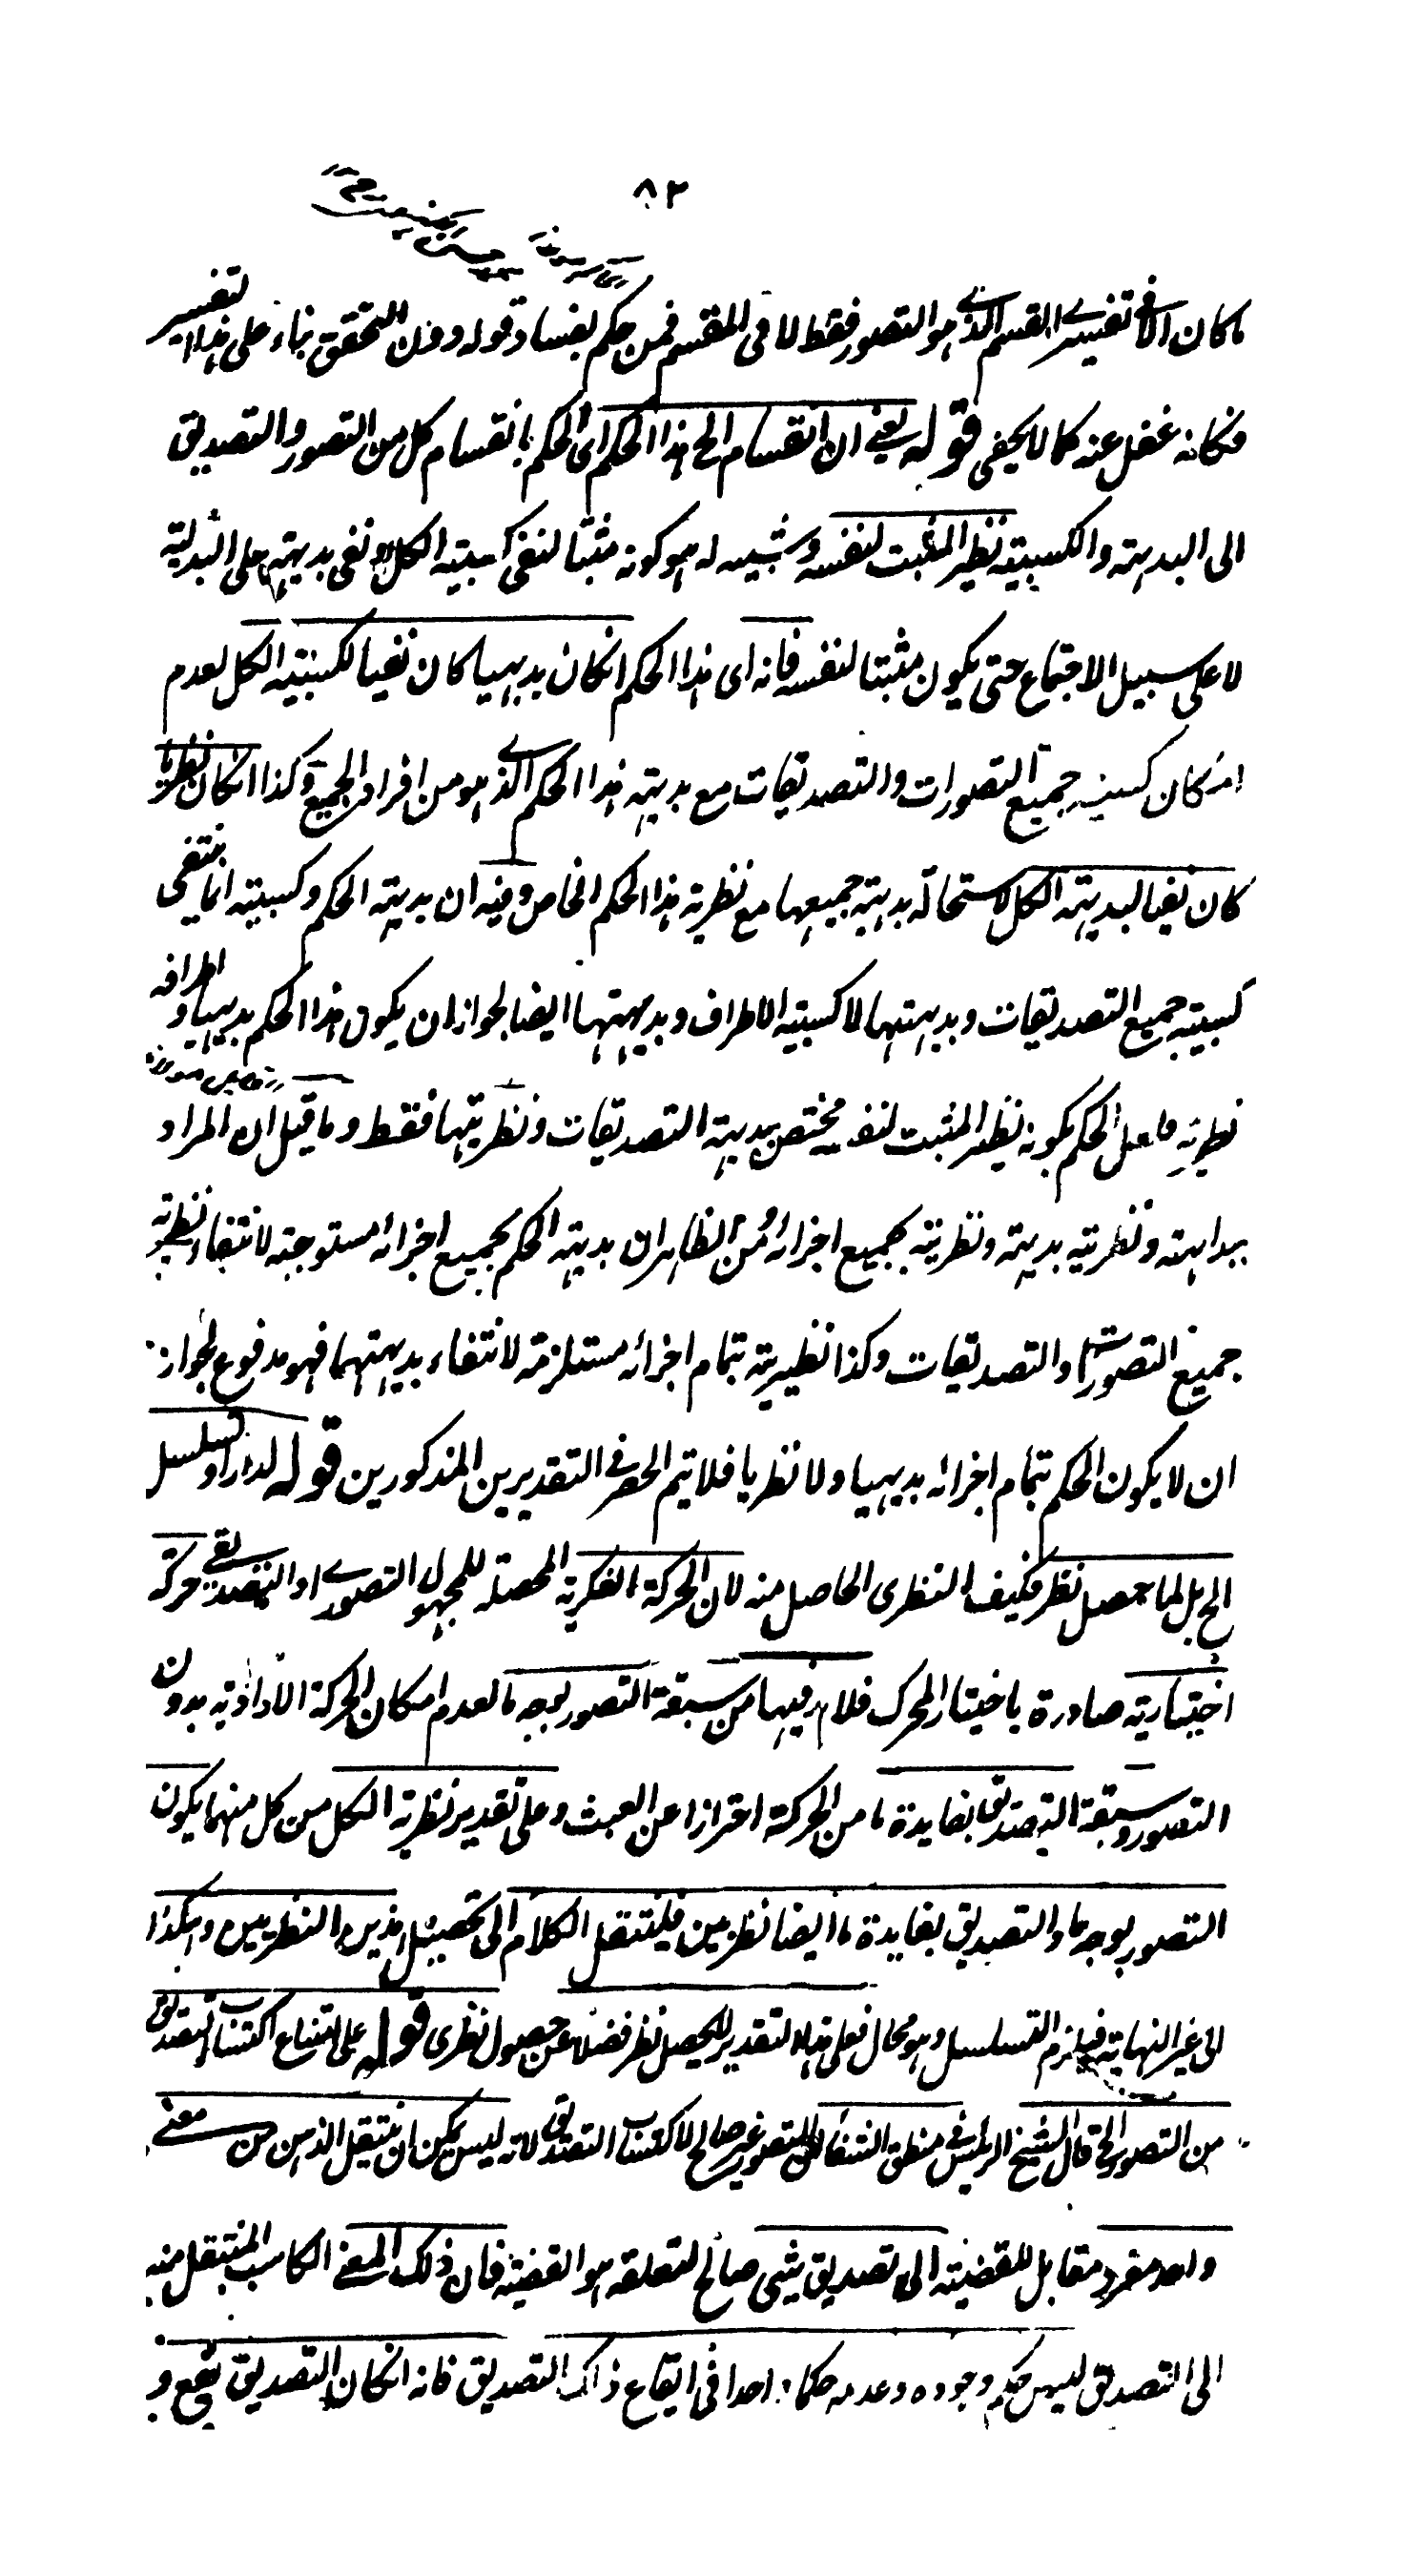 ٨٢
ما كان الا في تفسير القسم الذي هو التصور فقط لا في المقسم فمن حكم بفساد قوله ودون التحقق بناء على هذا التفسير
فكانه غفل عنه كما لا يخفى قوله يعني ان انقسام الخ هذا الحكم اي الحكم بانقسام كل من التصور والتصديق
الى البديهية والكسبية نظير المثبت لنفسه وشبيه له هو كونه مثبتا لنفي كسبية الكل ونفي بديهيته على البدلية
لا على سبيل الاجتماع حتى يكون مثبتا لنفسه فانه اي هذا الحكم انكان بديهيا كان نفيا لكسبية الكل لعدم
امكان كسبية جميع التصورات والتصديقات مع بديهية هذا الحكم الذي هو من افراد الجميع وكذا انكان نظريا
كان نفيا لبديهية الكل لاستحالة بديهية جميعها مع نظرية هذا الحكم الخاص وفيه ان بديهية الحكم وكسبية انما ينتفي
كسبية جميع التصديقات وبديهيتها لا كسبية الاطراف وبديهيتها ايضا لجواز ان يكون هذا الحكم بديهيا واطرافه
نظرية فلعل الحكم بكونه نظير المثبت لنفسه مختص ببديهية التصديقات ونظريتها فقط وما قيل ان المراد
ببداهته ونظريته بديهية ونظرية بجميع اجزائه ومن الظاهر ان بديهية الحكم بجميع اجزائه مستوجبة لانتفاء نظرية
جميع التصورات والتصديقات وكذا نظريته بتمام اجزائه مستلزمة لانتفاء بديهيتهما فهو مدفوع لجواز
ان لا يكون الحكم بتمام اجزائه بديهيا ولا نظريا فلا يتم الحصر في التقديرين المذكورين قوله لدار او تسلسل
الخ بل لما حصل نظر فكيف النظرى الحاصل منه لان الحركة الفكرية المحصلة للمجهول التصوري او التصديقي حركة
اختيارية صادرة باختيار المحرك فلابد فيها من سبقة التصور بوجه ما لعدم امكان الحركة الارادية بدون
التصور وسبقة التصديق بفايدة ما من الحركة احترازا عن العبث وعلى تقدير نظرية الكل من كل منهما يكون
التصور بوجه ما والتصديق بفايدة ما ايضا نظريين فلينتقل الكلام الى تحصيل هذين النظريين وهكذا
الى غير النهاية فيلزم التسلسل وهو محال فعلى هذا التقدير لم يحصل نظر فضلا عن حصول نظرى قوله على امتناع اكتساب التصديق
من التصور الخ قال الشيخ الرئيس في منطق الشفاء ان التصور غير صالح لاكتساب التصديق لانه ليس يمكن ان ينتقل الذهن من معنى
واحد مفرد مقابل للقضية الى تصديق بشي صالح لتعلقه هو القضية فان ذلك المعنى الكاسب المنتقل منه
الى التصديق ليس حكم وجوده وعدمه حكما واحدا في ايقاع ذلك التصديق فانه انكان التصديق يقع و